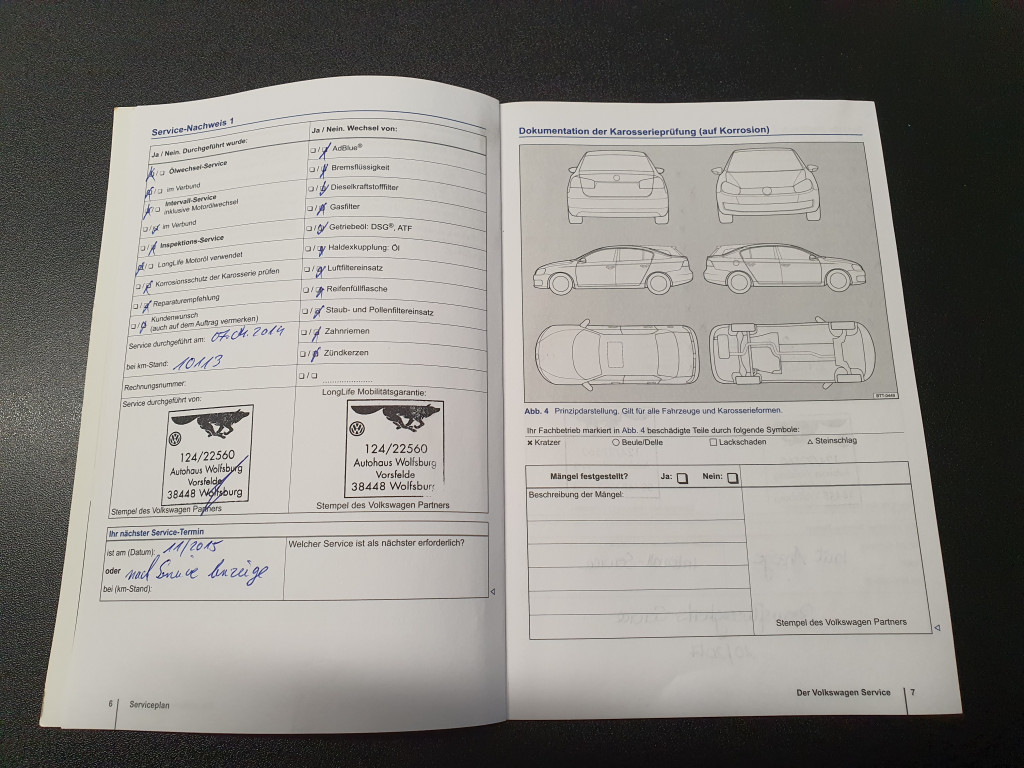 Service-Nachweis 1
Ja / Nein. Durchgeführt wurde:
Ölwechsel-Service
im Verbund
Intervall-Service
inklusive Motorölwechsel
im Verbund
Inspektions-Service
LongLife Motoröl verwendet
Korrosionsschutz der Karosserie prüfen
Reparaturempfehlung
Kundenwunsch
(auch auf dem Auftrag vermerken)
Service durchgeführt am:
bei km-Stand: 10113
Rechnungsnummer:
Service durchgeführt von:
124/22560
Autohaus Wolfsburg
Vorsfelde
38448 Wolfsburg
Stempel des Volkswagen Partners
Ja / Nein. Wechsel von:
AdBlue®
Bremsflüssigkeit
Dieselkraftstofffilter
Gasfilter
Getriebeöl: DSG®, ATF
Haldexkupplung: Öl
Luftfiltereinsatz
Reifenfüllflasche
Staub- und Pollenfiltereinsatz
Zahnriemen
Zündkerzen
LongLife Mobilitätsgarantie:
124/22560
Autohaus Wolfsburg
Vorsfelde
38448 Wolfsbur
Stempel des Volkswagen Partners
Ihr nächster Service-Termin
ist am (Datum): 11/2015
oder nach Service Anzeige
bei (km-Stand):
Welcher Service ist als nächster erforderlich?
6 Serviceplan
Dokumentation der Karosserieprüfung (auf Korrosion)
Abb. 4 Prinzipdarstellung. Gilt für alle Fahrzeuge und Karosserieformen.
Ihr Fachbetrieb markiert in Abb. 4 beschädigte Teile durch folgende Symbole:
× Kratzer ○ Beule/Delle □ Lackschaden △ Steinschlag
Mängel festgestellt? Ja: Nein:
Beschreibung der Mängel:
Stempel des Volkswagen Partners
Der Volkswagen Service 7